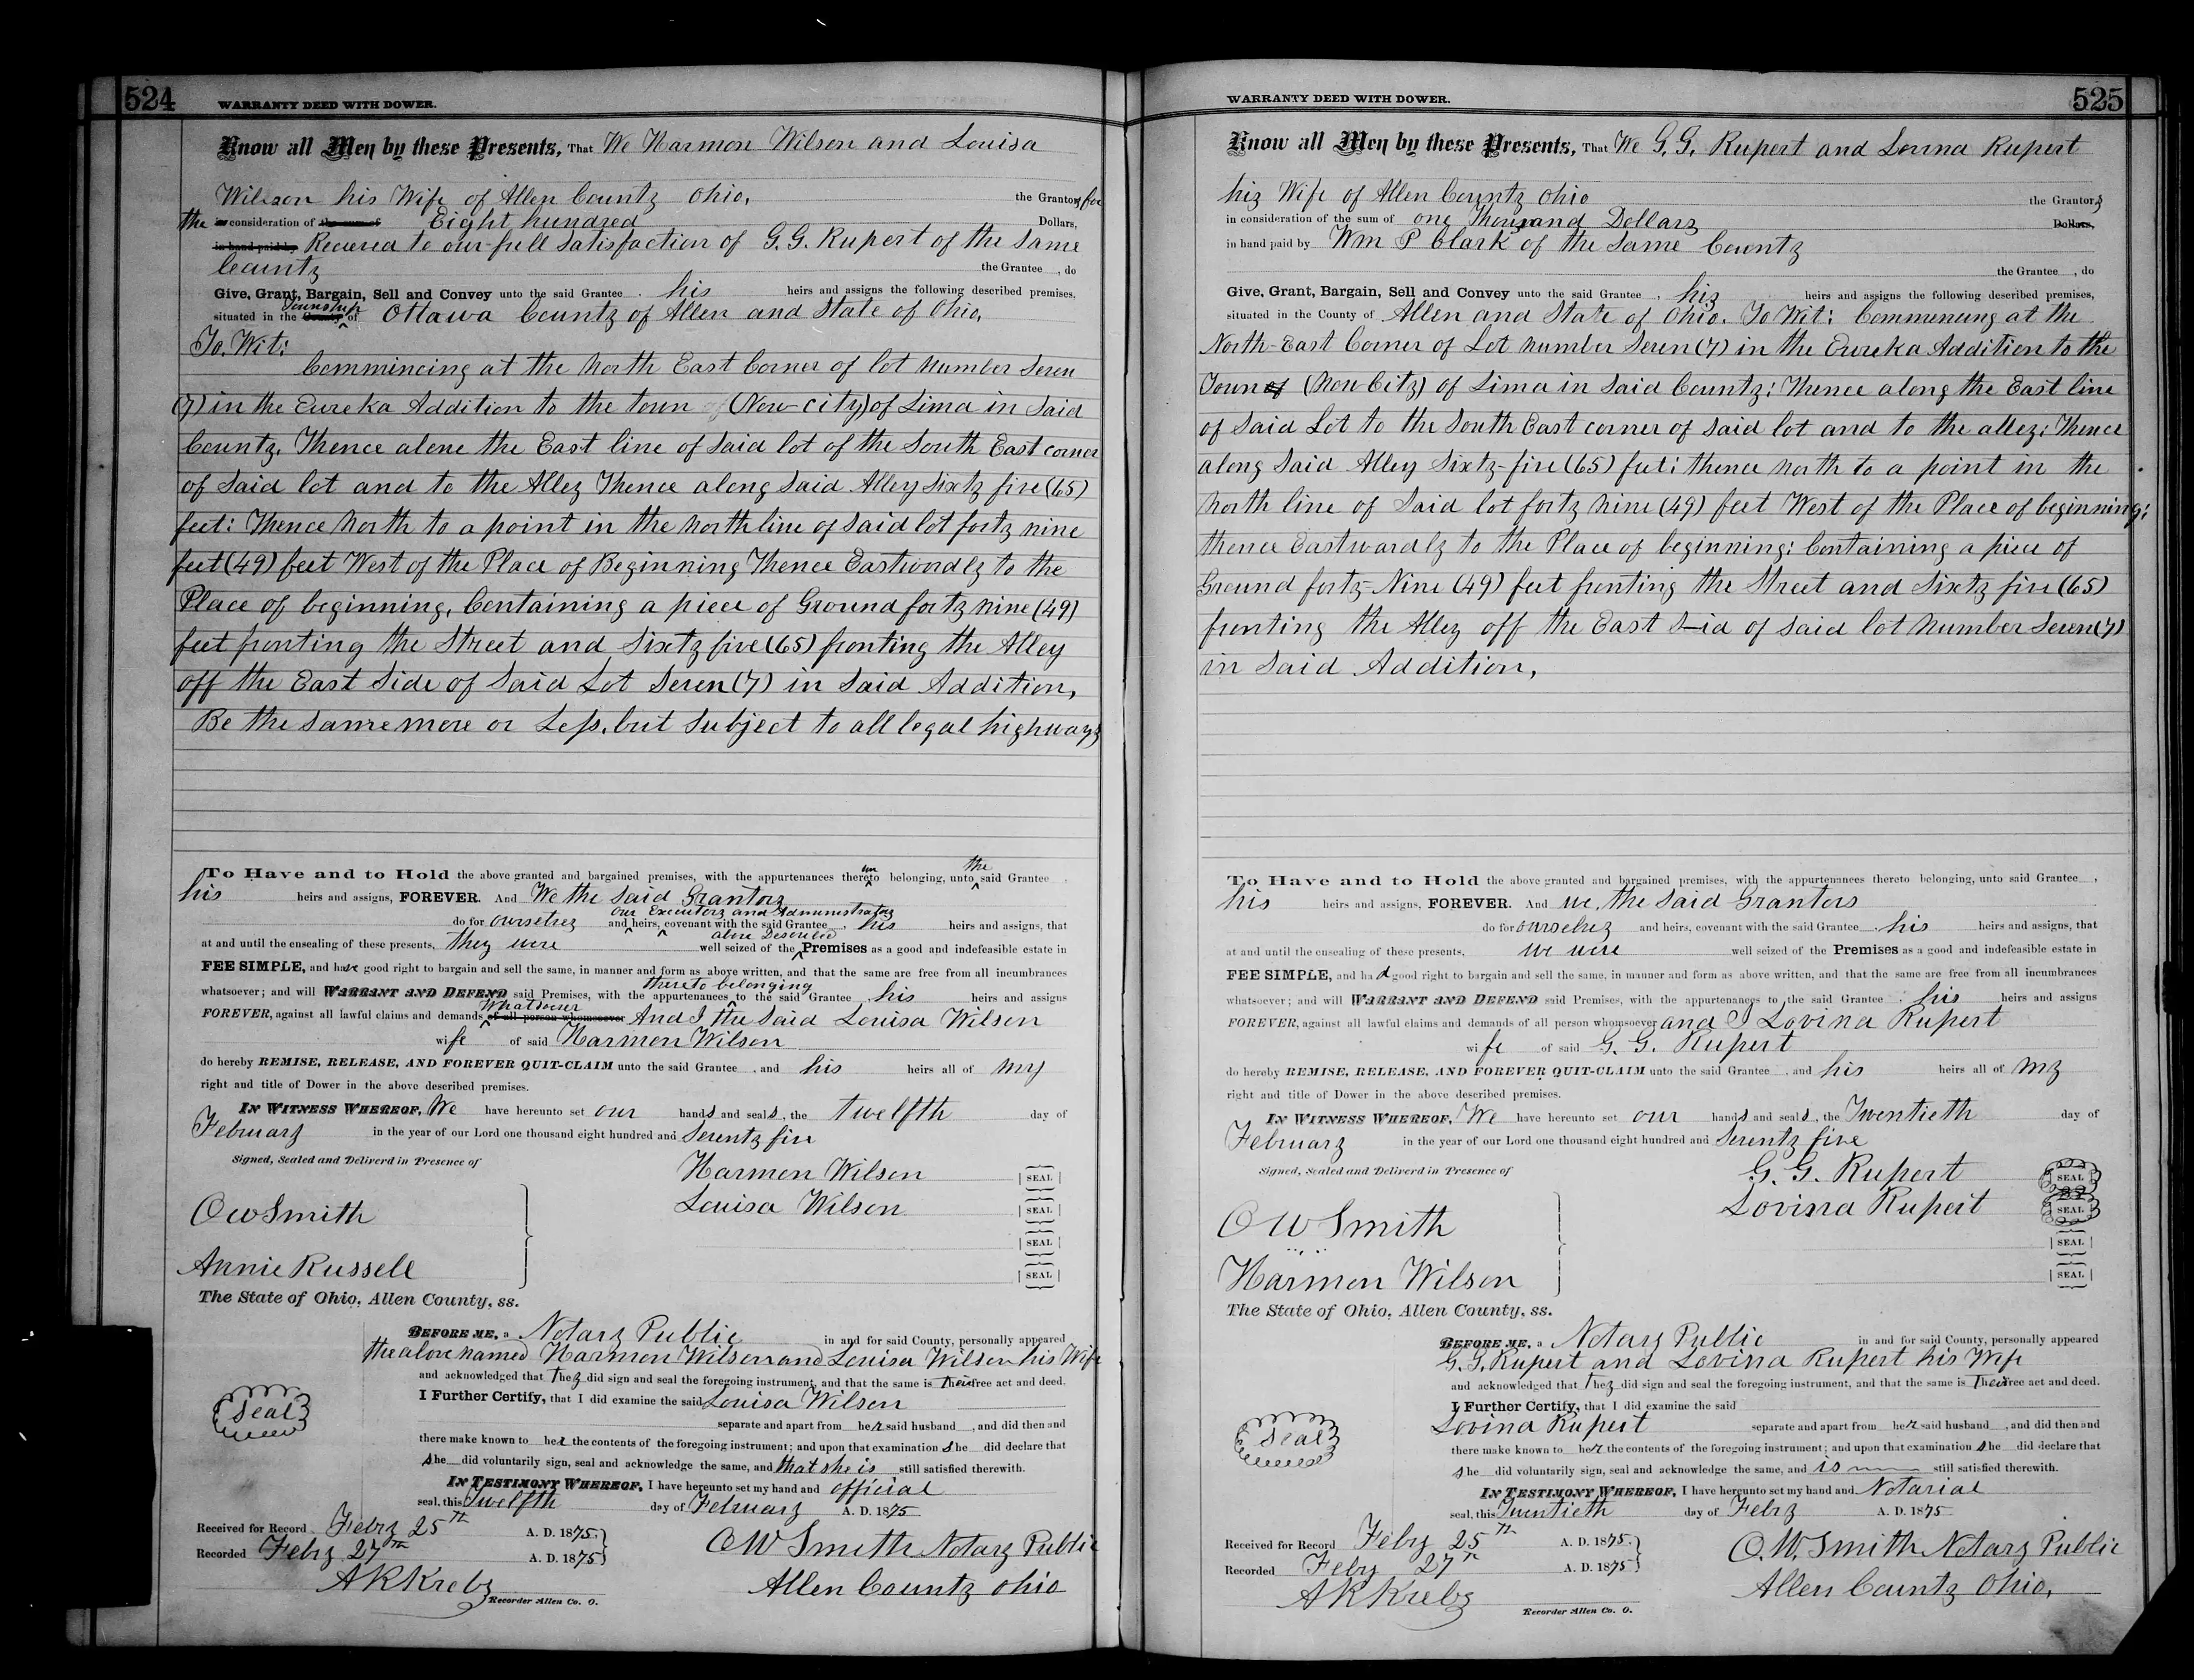 524
WARRANTY DEED WITH DOWER.
Know all Men by these Presents, That We Harmon Wilson and Louisa
Wilson his Wife of Allen County Ohio, the Grantors, for
the in consideration of the sum of Eight hundred Dollars,
in hand paid by Received to our full Satisfaction of G. G. Rupert of the Same
County the Grantee , do
Give, Grant, Bargain, Sell and Convey unto the said Grantee , his heirs and assigns the following described premises,
Township
situated in the County of Ottawa County of Allen and State of Ohio,
To. Wit:
Commencing at the North East Corner of lot Number Seven
(7) in the Eureka Addition to the town of (Now-City) of Lima in Said
County. Thence alone the East line of Said lot of the South East corner
of Said lot and to the Alley Thence along Said Alley Sixty five (65)
feet: Thence North to a point in the north line of Said lot forty nine
feet (49) feet West of the Place of Beginning Thence Eastwardly to the
Place of beginning, Containing a piece of Ground forty nine (49)
feet fronting the Street and Sixty five (65) fronting the Alley
off the East Side of Said Lot Seven (7) in Said Addition,
Be the Same more or Less, but Subject to all legal highways
un the
To Have and to Hold the above granted and bargained premises, with the appurtenances thereto belonging, unto said Grantee ,
his heirs and assigns, FOREVER. And We the Said Grantors
our Executors and Administrators
do for ourselves and heirs, covenant with the said Grantee , his heirs and assigns, that
above Described
at and until the ensealing of these presents, they were well seized of the Premises as a good and indefeasible estate in
FEE SIMPLE, and have good right to bargain and sell the same, in manner and form as above written, and that the same are free from all incumbrances
thereto belonging
whatsoever; and will WARRANT AND DEFEND said Premises, with the appurtenances to the said Grantee , his heirs and assigns
Whatsoever
FOREVER, against all lawful claims and demands of all person whomsoever And I the Said Louisa Wilson
wife of said Harmon Wilson
do hereby REMISE, RELEASE, AND FOREVER QUIT-CLAIM unto the said Grantee , and his heirs all of my
right and title of Dower in the above described premises.
IN WITNESS WHEREOF, We have hereunto set our hands and seals, the twelfth day of
February in the year of our Lord one thousand eight hundred and Seventy five
Signed, Sealed and Deliverd in Presence of
Harmon Wilson SEAL
Louisa Wilson SEAL
O W Smith
SEAL
Annie Russell
SEAL
The State of Ohio, Allen County, ss.
BEFORE ME, a Notary Public in and for said County, personally appeared
the above named Harmon Wilson and Louisa Wilson his Wife
and acknowledged that they did sign and seal the foregoing instrument, and that the same is their free act and deed.
I Further Certify, that I did examine the said Louisa Wilson
Seal
separate and apart from her said husband , and did then and
there make known to her the contents of the foregoing instrument; and upon that examination she did declare that
she did voluntarily sign, seal and acknowledge the same, and that she is still satisfied therewith.
IN TESTIMONY WHEREOF, I have hereunto set my hand and official
seal, this Twelfth day of February A. D. 1875
Received for Record Feby 25th A. D. 1875.
Recorded Feby 27th A. D. 1875
O W Smith Notary Public
A K Krebs
Allen County Ohio
Recorder Allen Co. O.
WARRANTY DEED WITH DOWER.
525
Know all Men by these Presents, That We G. G. Rupert and Lovina Rupert
his Wife of Allen County Ohio the Grantors
in consideration of the sum of One Thousand Dollars Dollars,
in hand paid by Wm P Clark of the Same County
the Grantee , do
Give, Grant, Bargain, Sell and Convey unto the said Grantee , his heirs and assigns the following described premises,
situated in the County of Allen and State of Ohio. To Wit: Commencing at the
North-East Corner of Lot Number Seven (7) in the Eureka Addition to the
Town of (Now City) of Lima in Said County: Thence along the East line
of Said Lot to the South East corner of Said lot and to the alley: Thence
along Said Alley Sixty-five (65) feet: thence North to a point in the
North line of Said lot forty nine (49) feet West of the Place of beginning:
thence Eastwardly to the Place of beginning: Containing a piece of
Ground forty-Nine (49) feet fronting the Street and Sixty five (65)
fronting the Alley off the East S-id of Said lot Number Seven (7)
in Said Addition,
To Have and to Hold the above granted and bargained premises, with the appurtenances thereto belonging, unto said Grantee ,
his heirs and assigns, FOREVER. And we, the Said Grantors
do for ourselves and heirs, covenant with the said Grantee , his heirs and assigns, that
at and until the ensealing of these presents, we were well seized of the Premises as a good and indefeasible estate in
FEE SIMPLE, and had good right to bargain and sell the same, in manner and form as above written, and that the same are free from all incumbrances
whatsoever; and will WARRANT AND DEFEND said Premises, with the appurtenances to the said Grantee , his heirs and assigns
FOREVER, against all lawful claims and demands of all person whomsoever and I Lovina Rupert
wife of said G. G. Rupert
do hereby REMISE, RELEASE, AND FOREVER QUIT-CLAIM unto the said Grantee , and his heirs all of my
right and title of Dower in the above described premises.
IN WITNESS WHEREOF, We have hereunto set our hands and seals, the Twentieth day of
February in the year of our Lord one thousand eight hundred and Seventy five
Signed, Sealed and Deliverd in Presence of
G. G. Rupert SEAL
Lovina Rupert SEAL
O W Smith
SEAL
Harmon Wilson
SEAL
The State of Ohio, Allen County, ss.
BEFORE ME, a Notary Public in and for said County, personally appeared
G. G. Rupert and Lovina Rupert his Wife
and acknowledged that they did sign and seal the foregoing instrument, and that the same is Their free act and deed.
I Further Certify, that I did examine the said
Lovina Rupert separate and apart from her said husband , and did then and
Seal
there make known to her the contents of the foregoing instrument; and upon that examination she did declare that
she did voluntarily sign, seal and acknowledge the same, and is still satisfied therewith.
IN TESTIMONY WHEREOF, I have hereunto set my hand and Notarial
seal, this Twentieth day of Feby A. D. 1875
Received for Record Feby 25th A. D. 1875.
Recorded Feby 27th A. D. 1875
O. W. Smith Notary Public
A K Krebs
Allen County Ohio,
Recorder Allen Co. O.